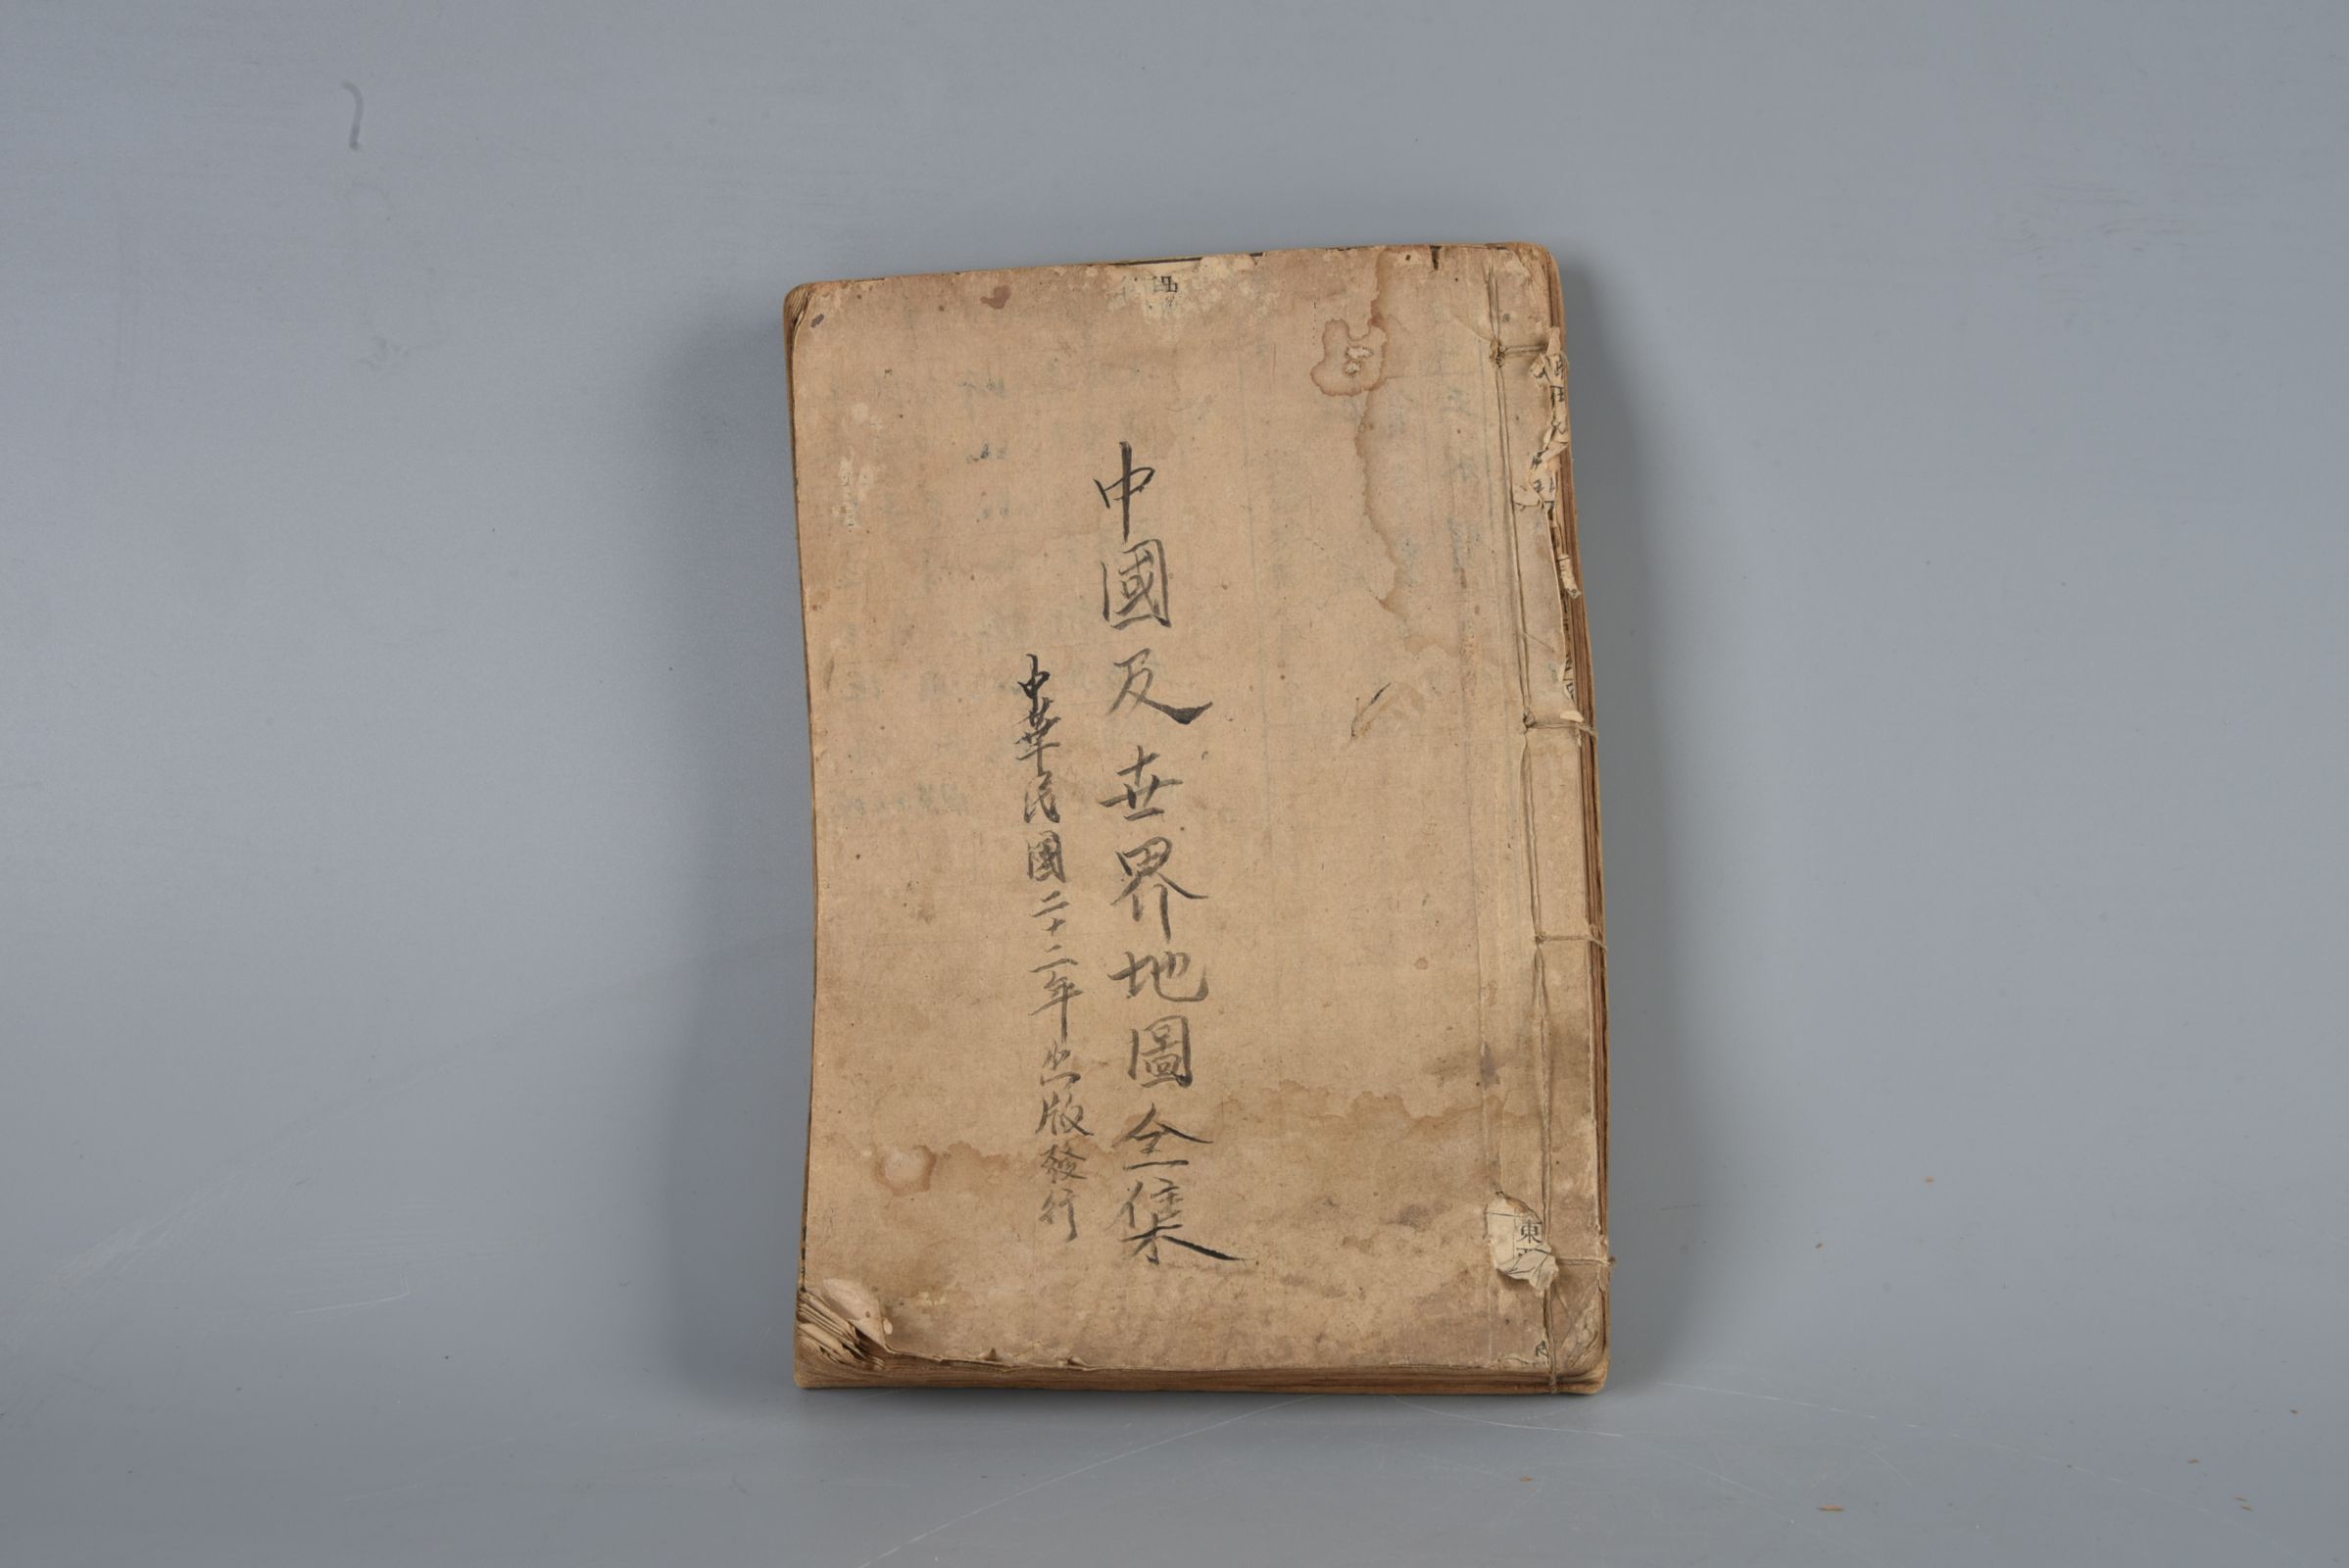 中國及世界地圖全集
中華民國二十二年出版發行
東